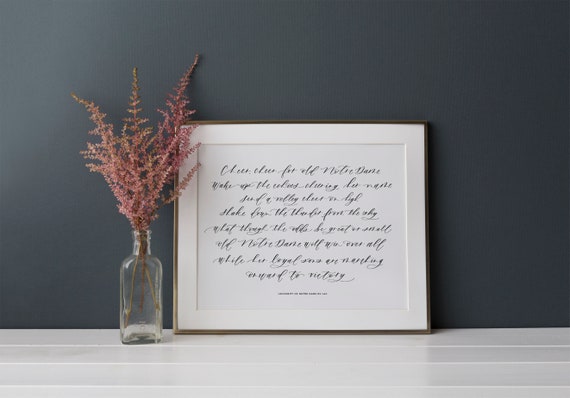 Cheer, cheer for old Notre Dame
Wake up the echoes cheering her name
Send a volley cheer on high
Shake down the thunder from the sky
What though the odds be great or small
Old Notre Dame will win over all
While her loyal sons are marching
onward to victory
UNIVERSITY OF NOTRE DAME